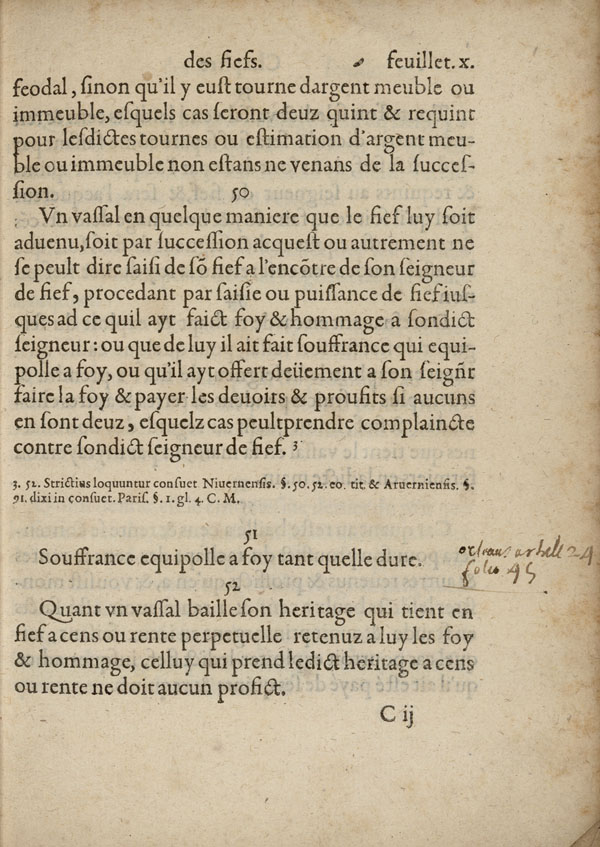 des fiefs. feuillet.x.
feodal, ſinon qu'il y euſt tourne dargent meuble ou
immeuble, eſquels cas ſeront deuz quint & requint
pour leſdictes tournes ou eſtimation d'argent meu-
ble ou immeuble non eſtans ne venans de la ſucceſ-
ſion.
50
Vn vaſſal en quelque maniere que le fief luy ſoit
aduenu, ſoit par ſucceſſion acqueſt ou autrement ne
ſe peult dire ſaiſi de ſõ fief a l'encõtre de ſon ſeigneur
de fief, procedant par ſaiſie ou puiſſance de fief iuſ-
ques ad ce quil ayt faict foy & hommage a ſondict
ſeigneur: ou que de luy il ait fait ſouffrance qui equi-
polle a foy, ou qu'il ayt offert deüement a ſon ſeigñr
faire la foy & payer les deuoirs & proufits ſi aucuns
en ſont deuz, eſquelz cas peultprendre complaincte
contre ſondict ſeigneur de fief. 3
3. 52. Strictius loquuntur conſuet Niuernenſis. §. 50. 52. eo. tit. & Aruernienſis. §.
91. dixi in conſuet. Pariſ. §. 1. gl. 4. C. M.
51
Souffrance equipolle a foy tant quelle dure.
24
folio 45
52
Quant vn vaſſal baille ſon heritage qui tient en
fief a cens ou rente perpetuelle retenuz a luy les foy
& hommage, celluy qui prend ledict heritage a cens
ou rente ne doit aucun profict.
C ij